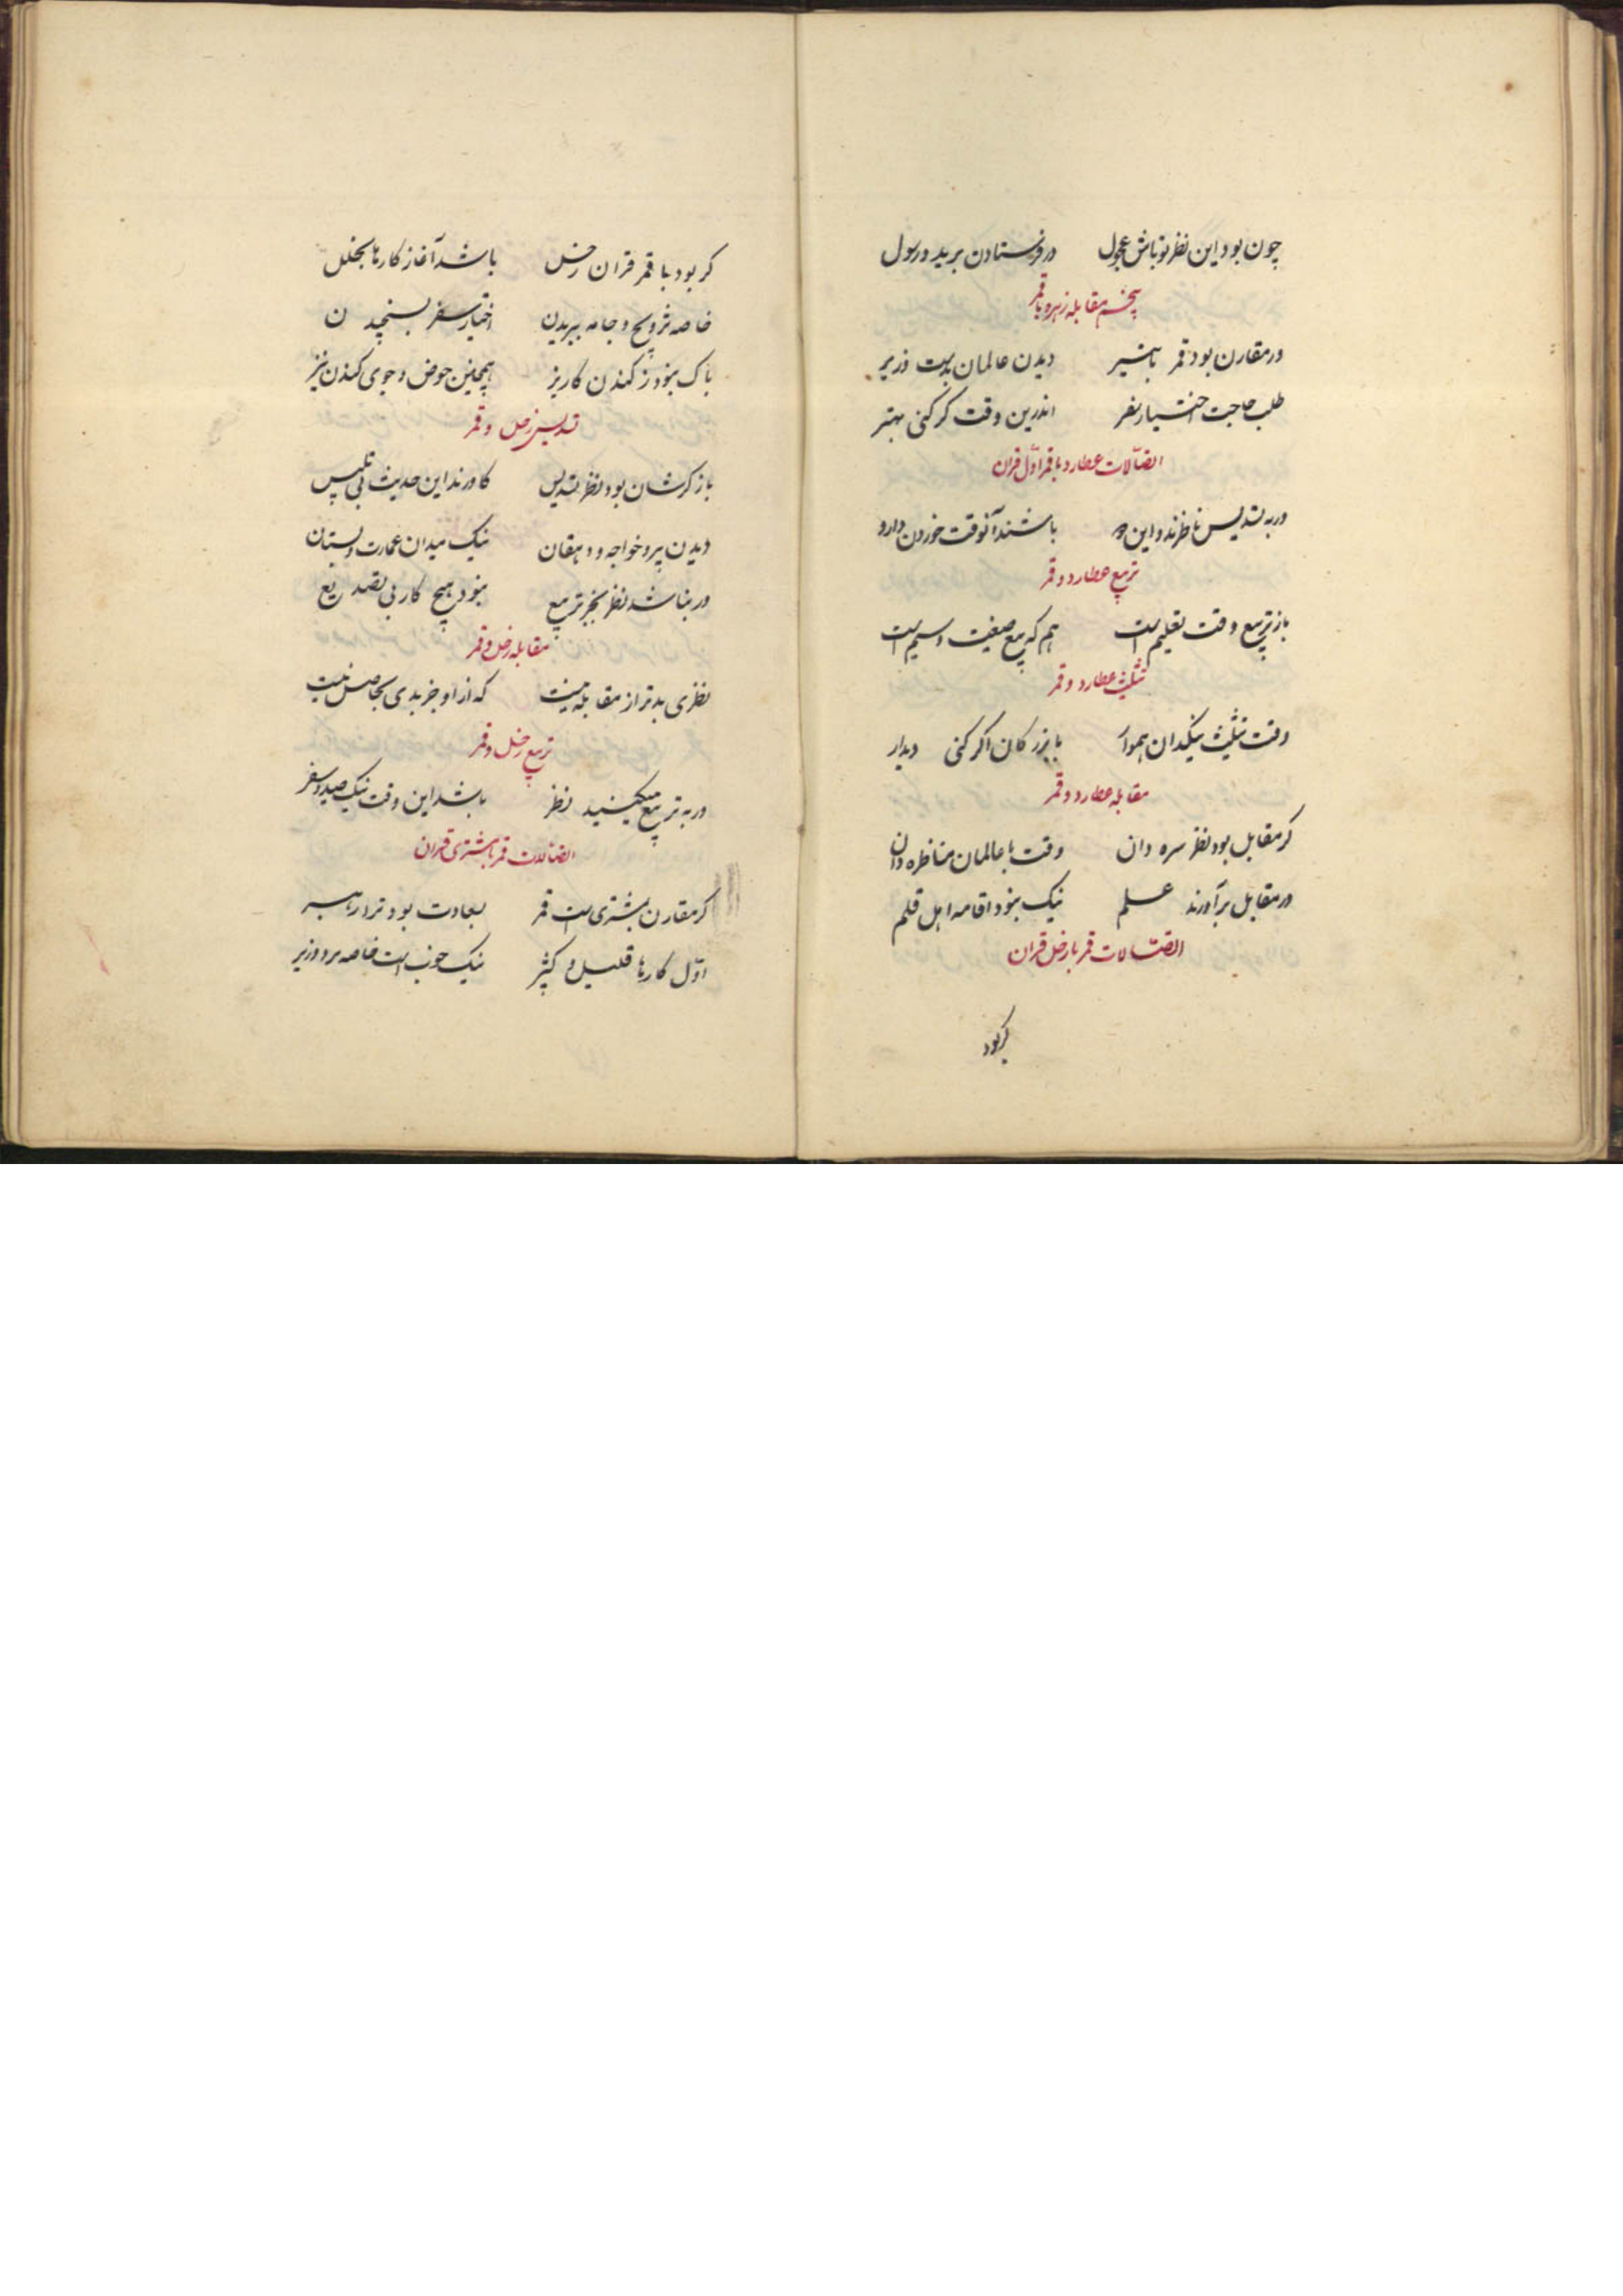 چون بود این نظر تو باش عجول در فرستادن برید و رسول
پنجم مقابله زهره با قمر
ور مقارن بود قمر با تیر دیدن عالمان بدست وزیر
طلب حاجت اختیار سفر اندرین وقت کر کنی بهتر
اتصالات عطارد با قمر اول قران
ور به تسدیس ناظرند و این دو باشند آنوقت خوردن دارو
تربیع عطارد و قمر
باز تربیع وقت تعلیم است هم که بیع و سیم است
تثلیث عطارد و قمر
وقت تثلیث نیکدان هموار با بزرکان اکر کنی دیدار
مقابله عطارد و قمر
کر مقابل بود نظر سره دان وقت با عالمان مناظره دان
ور مقابل برآورند علم نیک نبود اقامه اهل قلم
اتصالات قمر با زحل قران
کر بود
کر بود با قمر قران زحل باشد آغاز کارها بخلل
خاصه تزویج و جامه ببریدن اختیار سفر بسنجیدن
باک نبود ز کندن کاریز همچنین حوض و جوی کندن نیز
تسدیس زحل و قمر
باز کرشان بود نظر تسدیس کاورند این حدیث بی تلبیس
دیدن پیر و خواجه و دهقان نیک میدان عمارت و بستان
ور نباشد نظر بجز تربیع نبود هیچ کار بی تصدیع
مقابله زحل و قمر
نظری بدتر از مقابله نیست که از او جز بدی بحاصل نیست
تربیع زحل و قمر
ور به تربیع میکنید نظر باشد این وقت نیک صید و سفر
اتصالات قمر با مشتری قران
کر مقارن بمشتری است قمر بسعادت بود ترا رهبر
اول کارها قلیل و کثیر نیک خوب است خاصه برد وزیر